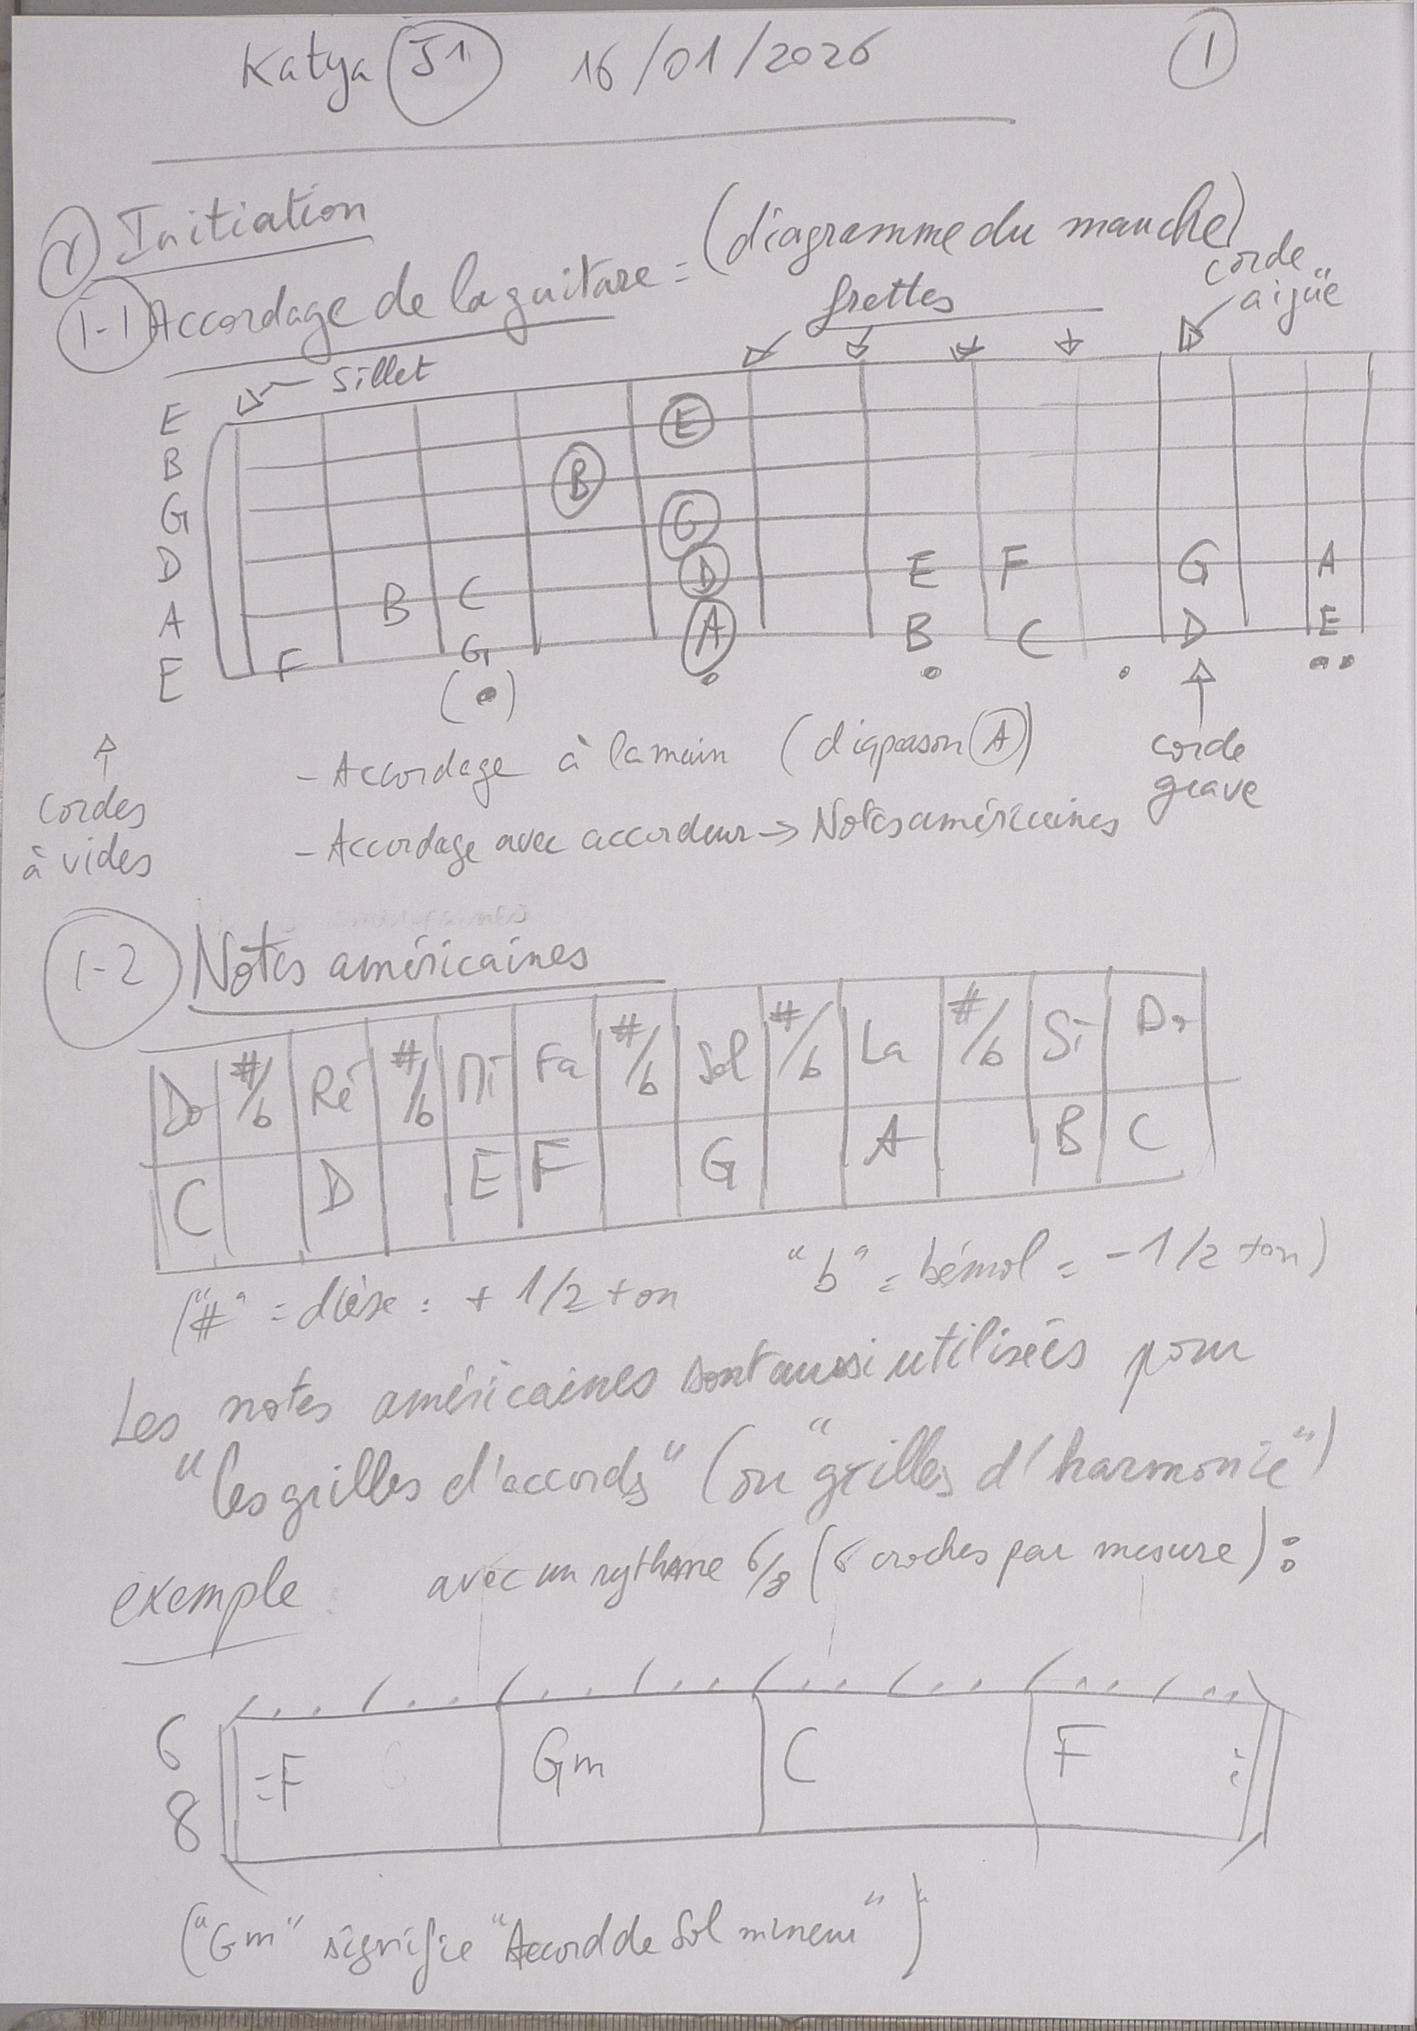 Katya J1 16/01/2026 1
I Initiation
1-1 Accordage de la guitare = (diagramme du manche)
frettes
corde
aigüe
Sillet
E
B
G
D
A
E
E
B
G
D E F G A
B C A B C D E
F G
(•)
cordes
à vides
- Accordage à la main (diapason A)
- Accordage avec accordeur → Notes américaines
corde
grave
1-2 Notes américaines
Do #/b Ré #/b Mi Fa #/b Sol #/b La #/b Si Do
C D E F G A B C
("#" = dièse = + 1/2 ton "b" = bémol = - 1/2 ton)
Les notes américaines sont aussi utilisées pour
"les grilles d'accords" (ou "grilles d'harmonie")
exemple avec un rythme 6/8 (6 croches par mesure) :
6
8
:F Gm C F :
("Gm" signifie "Accord de Sol mineur")